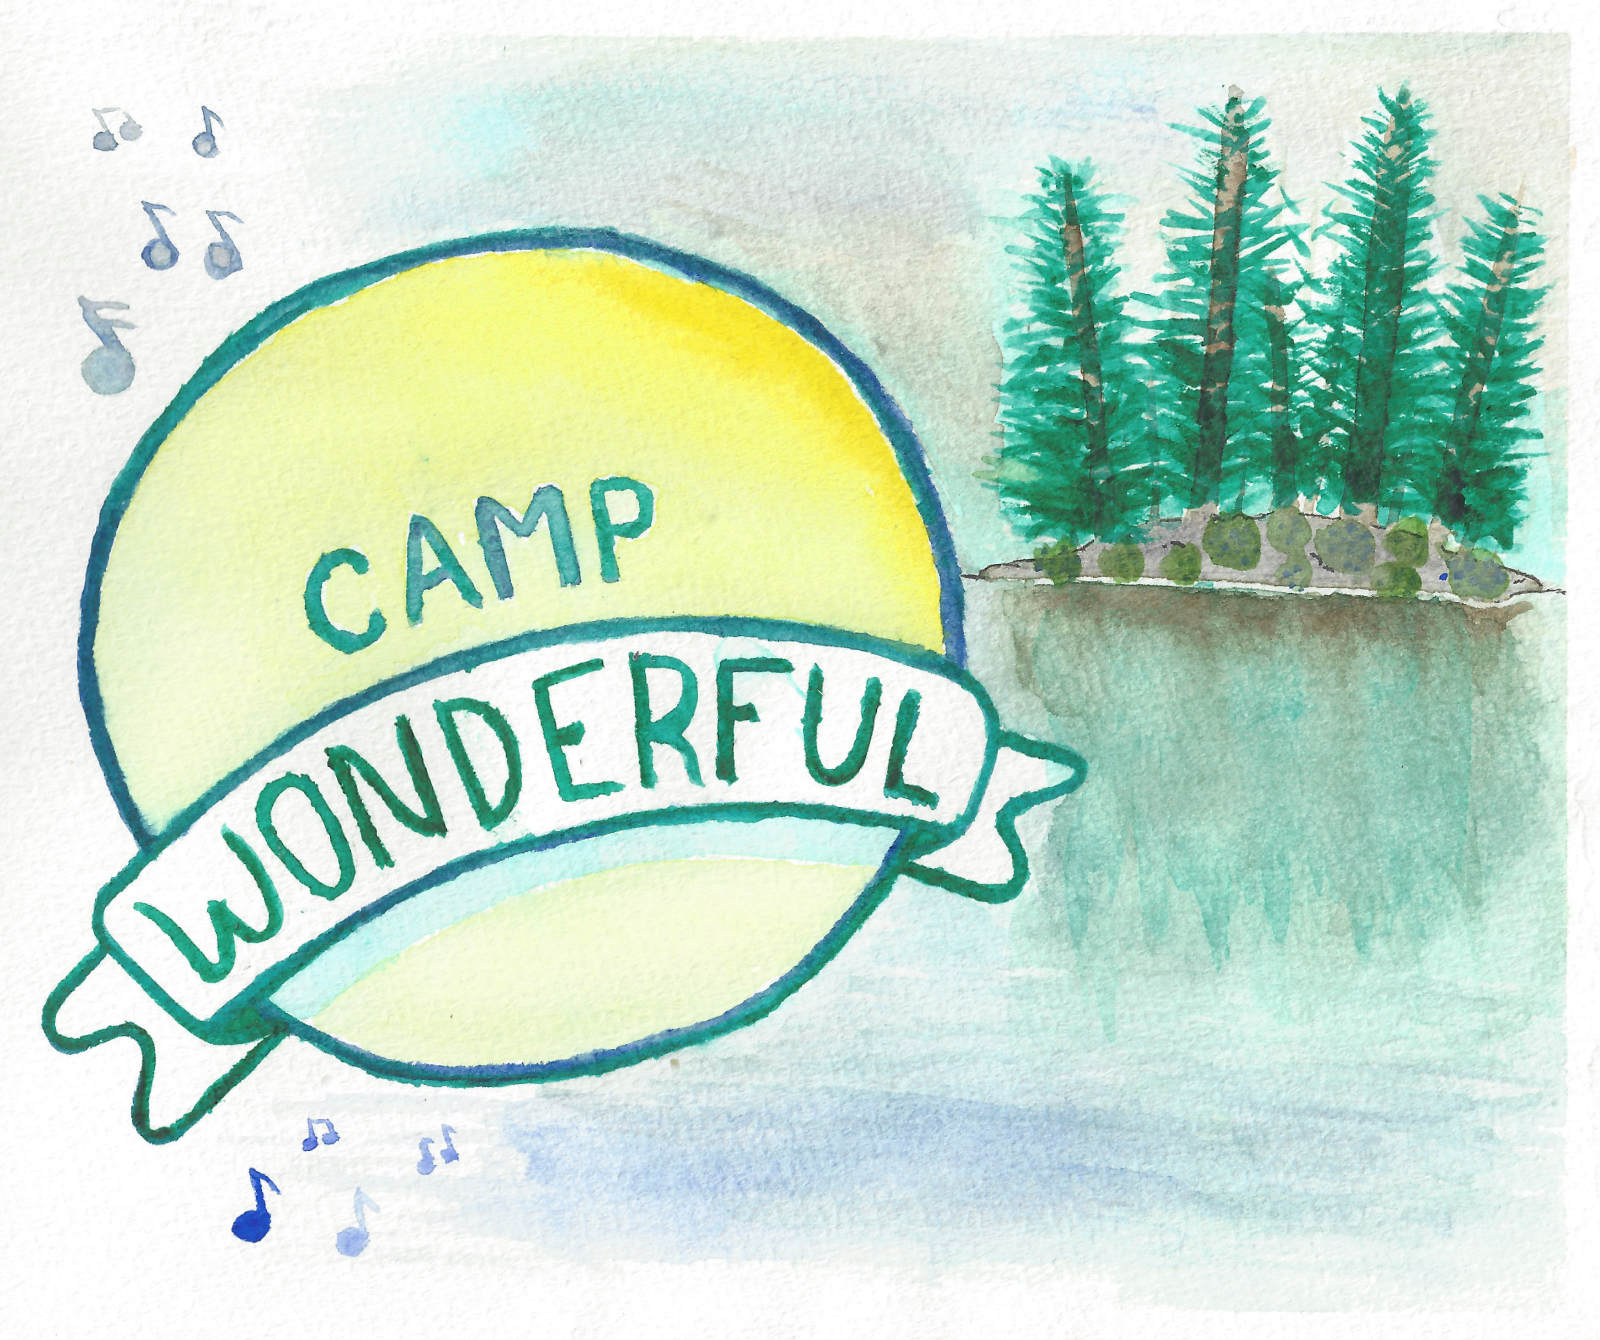 CAMP
WONDERFUL